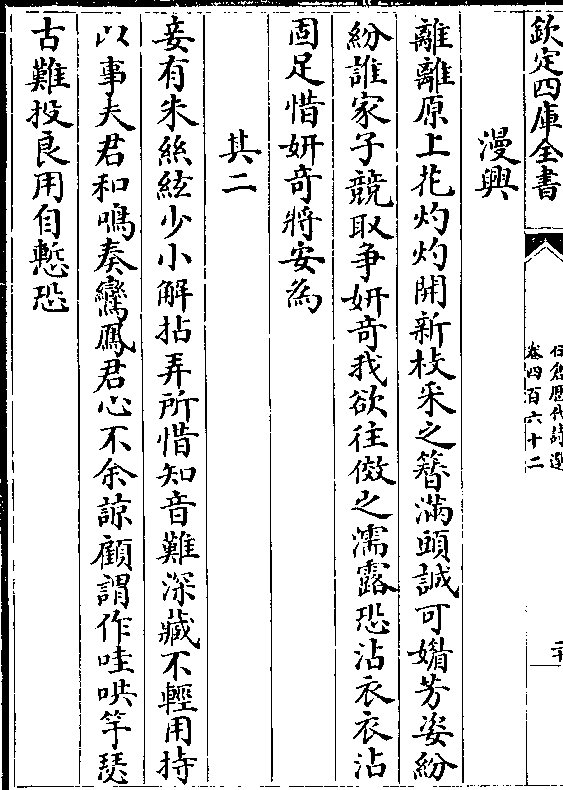 欽定四庫全書
石倉歷代詩選
卷四百六十二
漫興
離離原上花灼灼開新枝采之簪滿頭誠可媚芳姿紛
紛誰家子競取争妍奇我欲往傚之濡露恐沾衣衣沾
固足惜妍奇將安為
其二
妾有朱絲絃少小解拈弄所惜知音難深藏不輕用持
以事夫君和鳴奏鸞鳳君心不余諒顧謂作哇哄竽瑟
古難投良用自慙恐